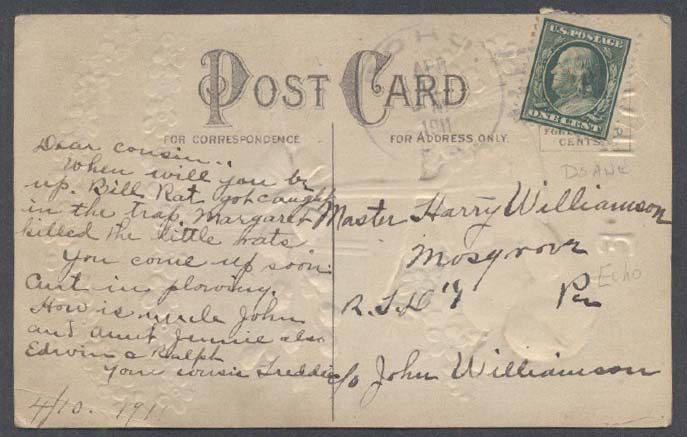 POST CARD
FOR CORRESPONDENCE
FOR ADDRESS ONLY.
ECHO
APR
1911
U.S. POSTAGE
ONE CENT
CENTS.
DSANK
Echo
Dear cousin..
When will you be
up. Bill Rat got caught
in the trap. Margaret
killed the little rats
You come up soon.
Curt in plowing.
How is uncle John
and aunt Jennie also
Edwin & Ralph
Your cousin Freddie
4/10. 1911
Master Harry Williamson
Mosgrove
R.F.D #1 Pa
c/o John Williamson